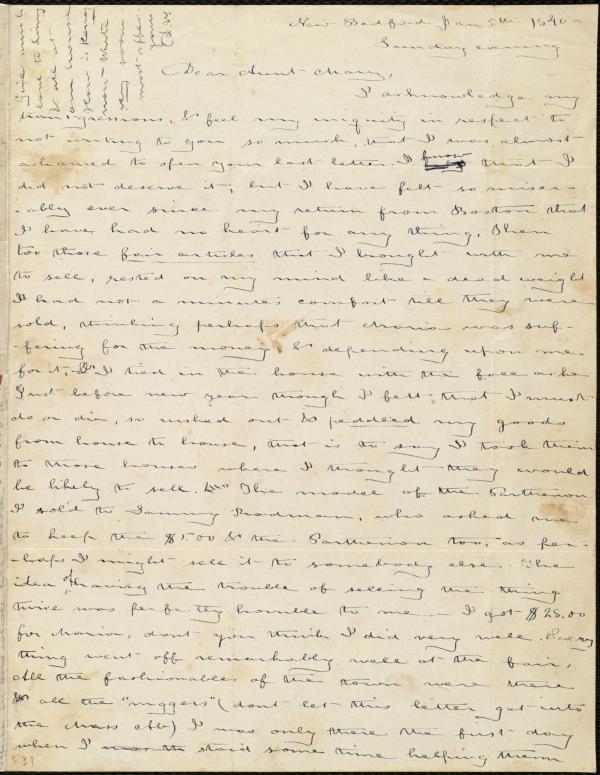 New Bedford Jan 5th 1840-
Sunday evening
Dear Aunt Mary,
I acknowledge my
transgressions, & feel my iniquity in respect to
not writing to you so much, that I was almost
ashamed to open your last letter. I know that I
did not deserve it, but I have felt so miser-
-ably ever since my return from Boston that
I have had no heart for any thing. Then
too those fair articles that I brought with me
to sell, rested on my mind like a dead weight
I had not a minute's comfort till they were
sold, thinking perhaps that Maria was suf-
-fering for the money, & depending upon me
for it, & I tied in the house with the face ache
Just before new year though I felt that I must
do or die, so rushed out & peddled my goods
from house to house, that is to say I took them
to those houses where I thought they would
be likely to sell. The model of the Parthenon
I sold to Sammy Rodman, who asked me
to keep the $5.00 & the Parthenon too, as per-
-haps I might sell it to somebody else. The
idea of having the trouble of selling the thing
twice was perfectly horrible to me - I got $25.00
for Maria, dont you think I did very well. Every
thing went off remarkably well at the fair,
All the fashionables of the town were there
& all the "niggers" (dont let this letter get into
the Mass Ab) I was only there the first day
when I was th staid some time helping them
Give much
love to Lucy
& all at
own
How is Henry
Non- Write
very soon
most affec-
yours
531